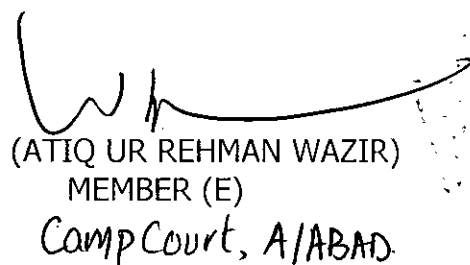 (ATIQ UR REHMAN WAZIR)
MEMBER (E)
Camp Court, A/ABAD.